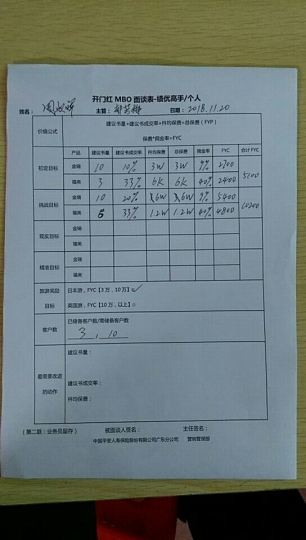 开门红 MBO 面谈表-绩优高手/个人
姓名： 主管： 日期：2018.11.20
价值公式 建议书量*建议书成交率*件均保费=总保费（FYP）
保费*佣金率=FYC
产品 建议书量 建议书成交率 件均保费 总保费 佣金率 FYC 合计 FYC
初定目标 金瑞 10 10% 3W 3W 9% 2700 5100
福类 3 33% 6K 6K 40% 2400
挑战目标 金瑞 10 20% 6W 6W 9% 5400 10200
福类 5 33% 1.2W 1.2W 40% 4800
现实目标 金瑞
福类
精准目标 金瑞
福类
旅游奖励 日本游，FYC【3万，10万】✓
目标 英国游，FYC【10万，以上】○
客户数 已储客客户数/需储备客户数
3 , 10
建议书量：
最需要改进 建议书成交率：
的动作
件均保费：
（第二联：业务员留存） 被面谈人签名： 主任签名：
中国平安人寿保险股份有限公司广东分公司 营销管理部